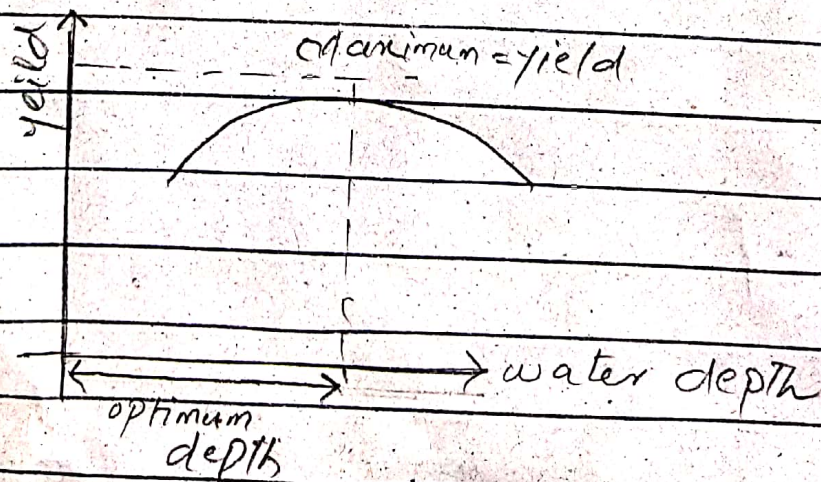 yeild
Maximum = yield
water depth
optimum
depth